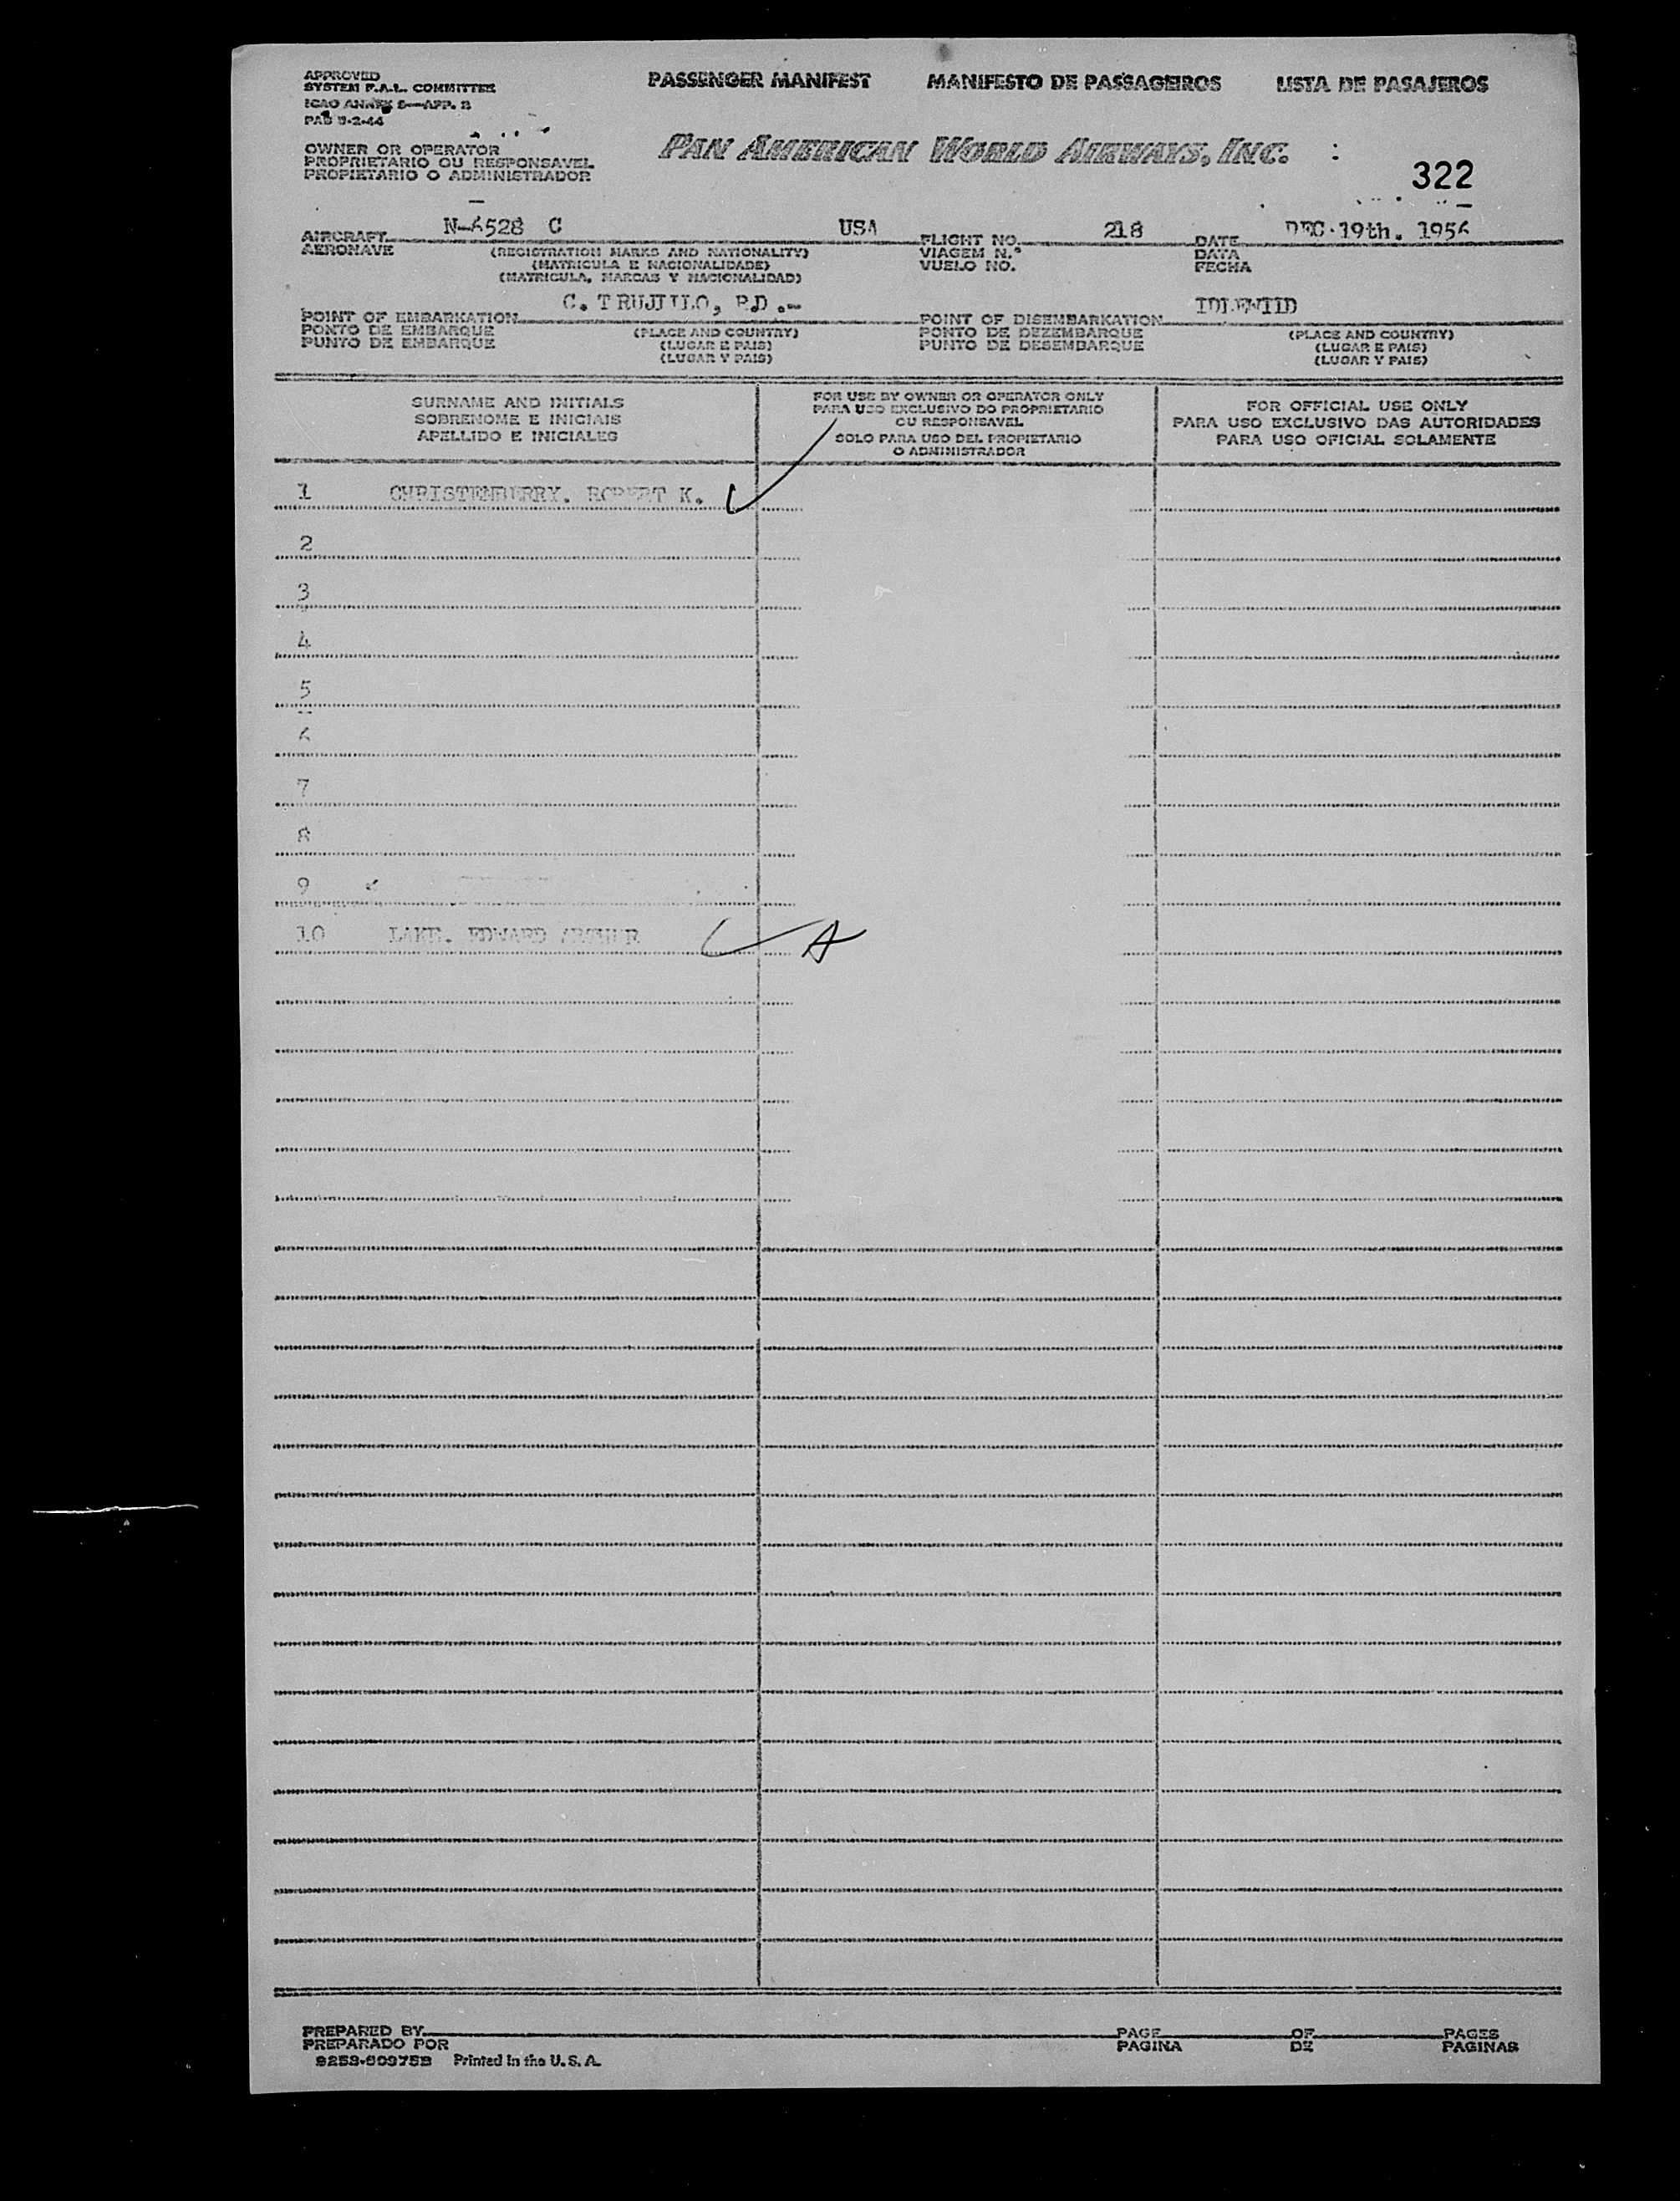 APPROVED
SYSTEM F.A.L. COMMITTEE
ICAO ANNEX 9—APP. 2
PAB 9-2-44
PASSENGER MANIFEST MANIFESTO DE PASSAGEIROS LISTA DE PASAJEROS
OWNER OR OPERATOR
PROPRIETARIO OU RESPONSAVEL
PROPIETARIO O ADMINISTRADOR
PAN AMERICAN WORLD AIRWAYS, INC.
322
AIRCRAFT N-6528 C USA FLIGHT NO. 218 DATE DEC. 19th. 1956
AERONAVE (REGISTRATION MARKS AND NATIONALITY) VIAGEM N.º DATA
(MATRICULA E NACIONALIDADE) VUELO NO. FECHA
(MATRICULA, MARCAS Y NACIONALIDAD)
POINT OF EMBARKATION C. TRUJILLO, R.D.- POINT OF DISEMBARKATION IDLEWILD
PONTO DE EMBARQUE (PLACE AND COUNTRY) PONTO DE DEZEMBARQUE (PLACE AND COUNTRY)
PUNTO DE EMBARQUE (LUGAR E PAIS) PUNTO DE DESEMBARQUE (LUGAR E PAIS)
(LUGAR Y PAIS) (LUGAR Y PAIS)
SURNAME AND INITIALS
SOBRENOME E INICIAIS
APELLIDO E INICIALES
FOR USE BY OWNER OR OPERATOR ONLY
PARA USO EXCLUSIVO DO PROPRIETARIO
OU RESPONSAVEL
SOLO PARA USO DEL PROPIETARIO
O ADMINISTRADOR
FOR OFFICIAL USE ONLY
PARA USO EXCLUSIVO DAS AUTORIDADES
PARA USO OFICIAL SOLAMENTE
1 CHRISTENBERRY. ROBERT K.
2
3
4
5
6
7
8
9
10 LAKE. EDWARD ARTHUR A
PREPARED BY PAGE OF PAGES
PREPARADO POR PAGINA DE PAGINAS
Printed in the U. S. A.